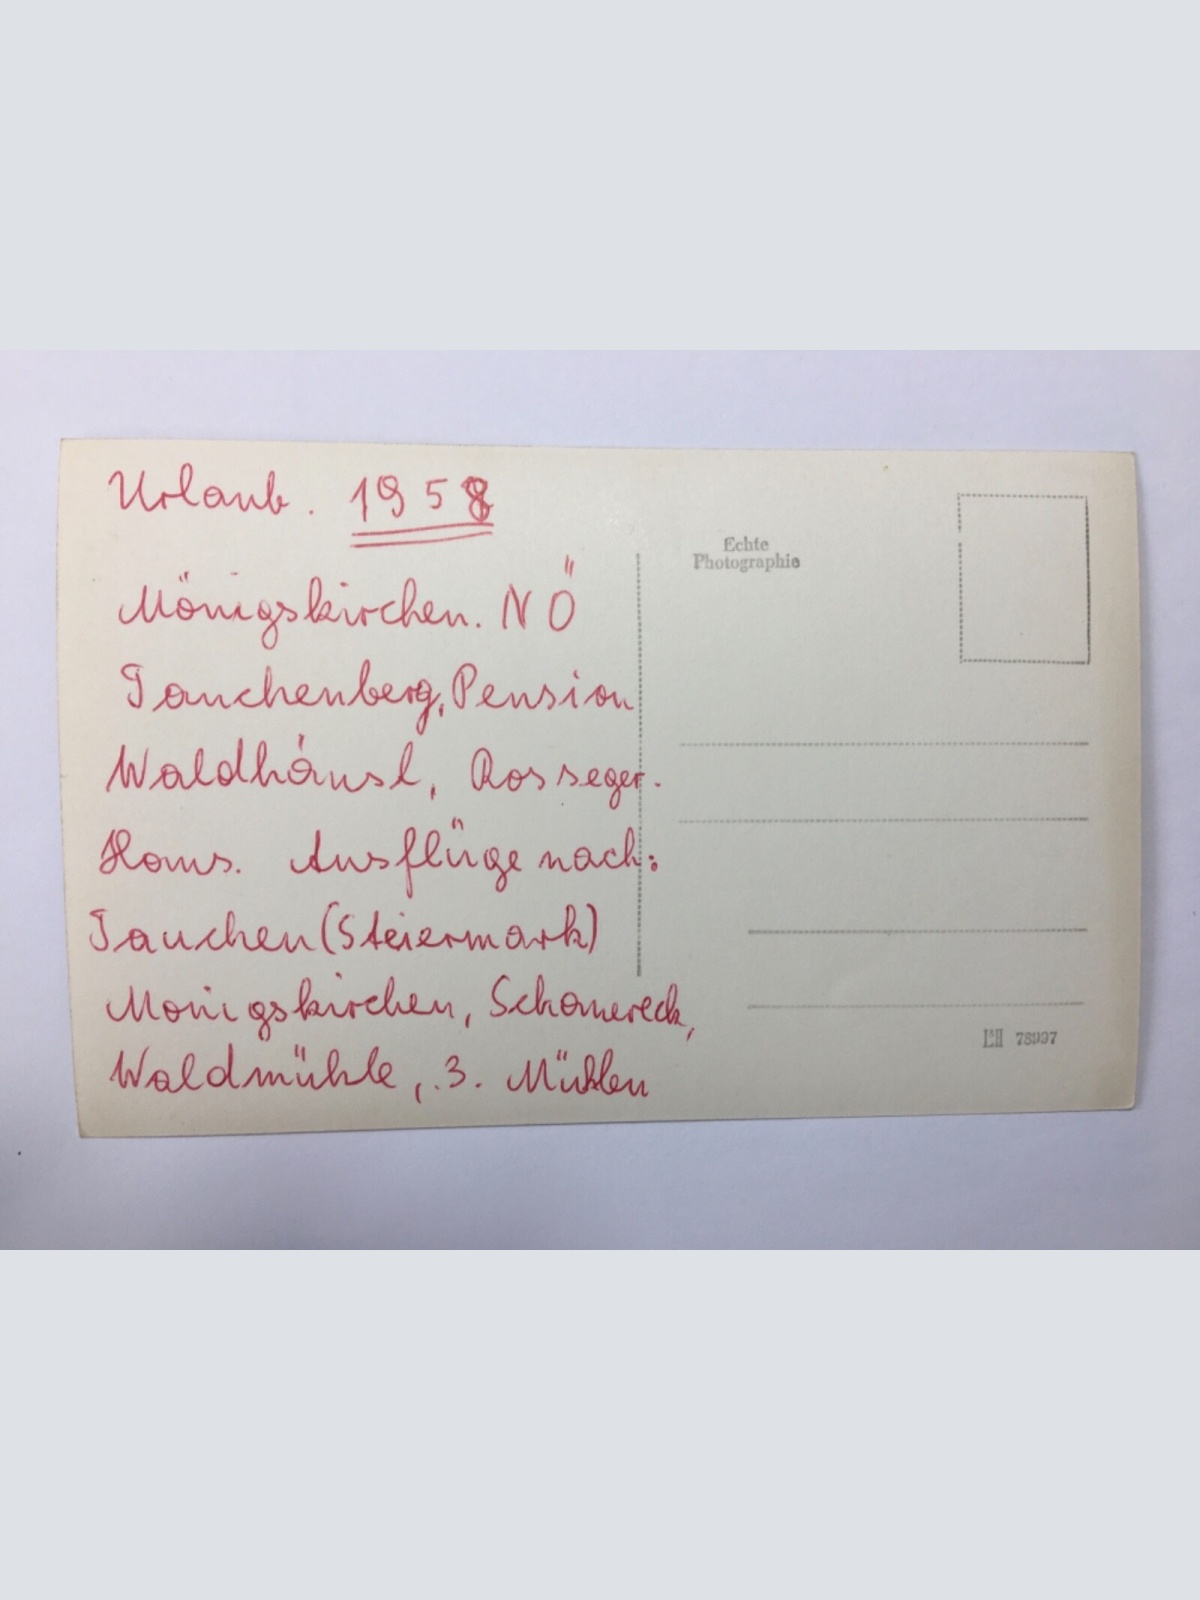 Urlaub. 1958
Mönigskirchen. NÖ
Tauchenberg, Pension
Waldhäusl, Rosseger.
Haus. Ausflüge nach:
Tauchen (Steiermark)
Monigskirchen,
Waldmühle, 3. Mühlen
Echte
Photographie
78997